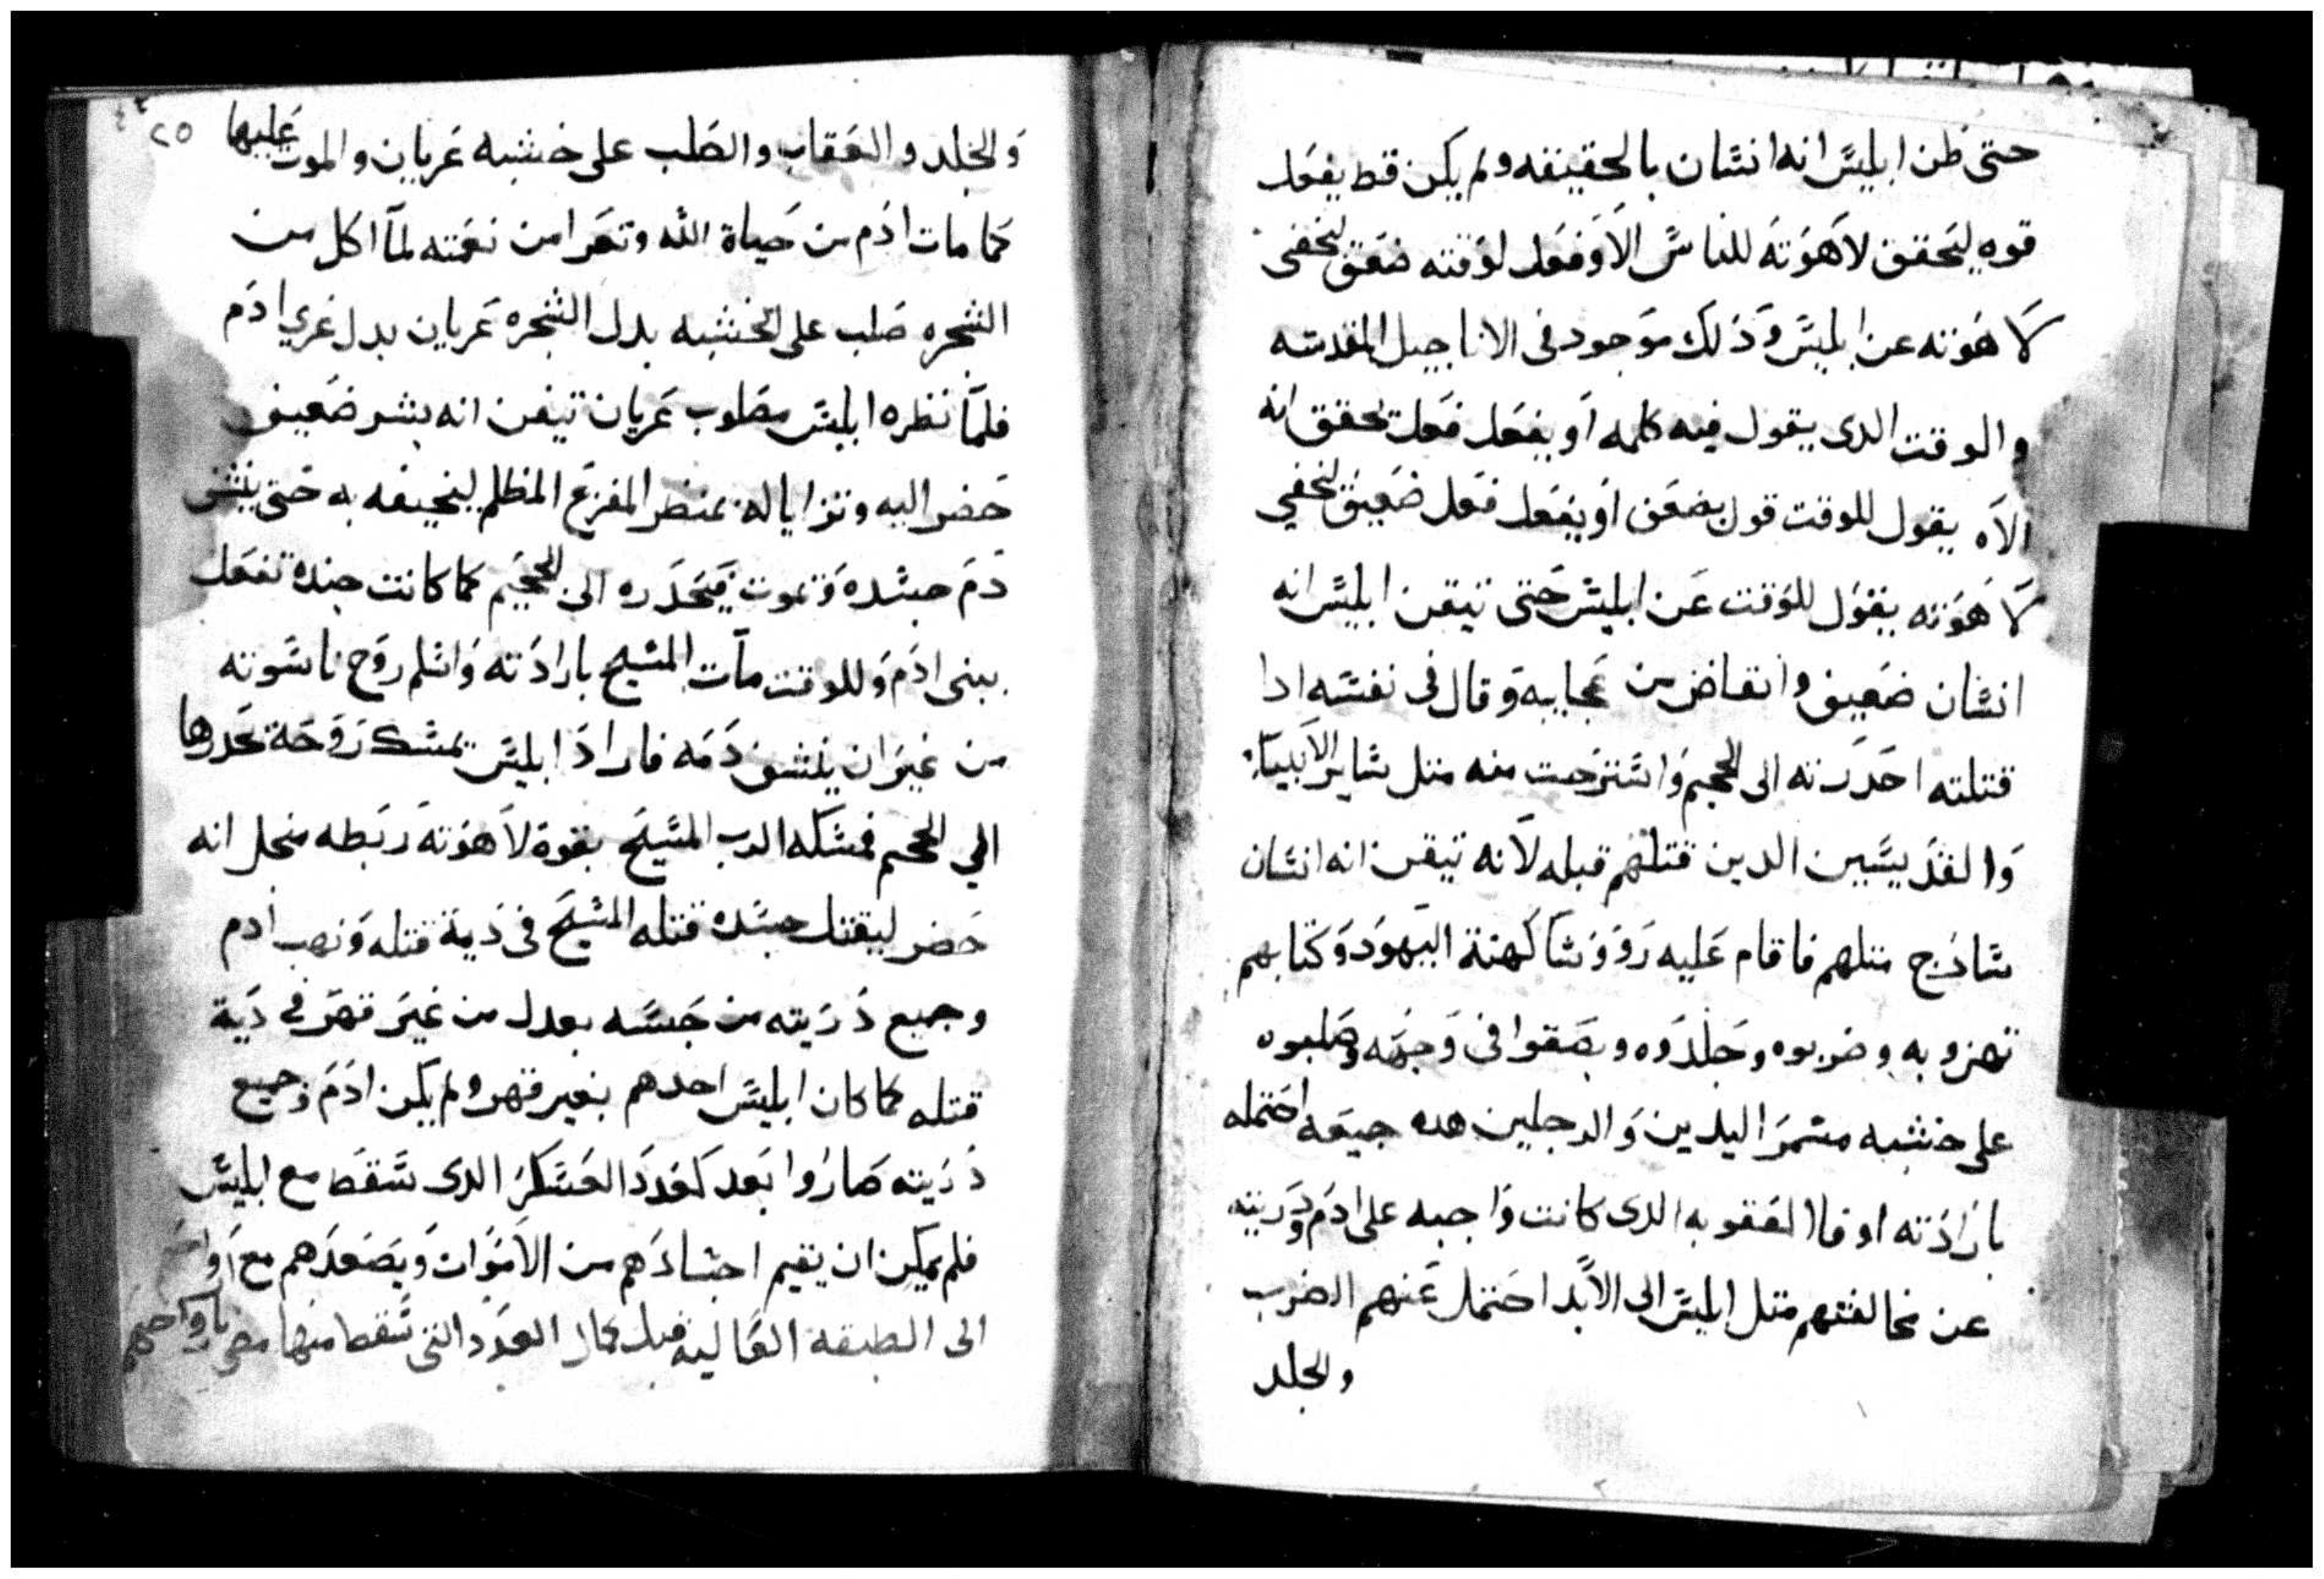 حتى ظن ابليس انه انسان بالحقيقه ولم يكن قط يفعل
قوه ليحقق لاهوته للناس الا وفعل لوقته ضعف ليخفى
لاهوته عن ابليس وذلك موجود فى الاناجيل المقدسه
والوقت الدى يقول فيه كلمه او يفعل فعل تحقق انه
الاه يقول للوقت قول يضعف او يفعل فعل ضعيف ليخفي
لاهوته بقول للوقت عن ابليس حتى تيقن ابليس انه
انسان ضعيف وانغاض من عجايبه وقال فى نفسه ادا
قتلته احدرته الى الجحيم واسترحت منه متل ساير الانبياء
والقديسين الدين قتلتهم قبله لانه تيقن انه انسان
سادج متلهم فاقام عليه رووسا كهنة اليهود وكتابهم
تهزو به وضربوه وجلدوه وبصقوا فى وجهه وصلبوه
على خشبه مسمر اليدين والرجلين هده جميعه احتمله
بارادته اوفا العقوبه الدى كانت واجبه على ادم ودريته
عن مخالفتهم متل ابليس الى الابد احتمل عنهم الضرب
والجلد
٢٥
والجلد والعقاب والصلب على خشبه عريان والموت عليها
كما مات ادم من حياة الله وتعرا من نعمته لما اكل من
الشجره صلب على الخشبه بدل الشجره عريان بدل عري ادم
فلما نظره ابليس مصلوب عريان تيقن انه بشر ضعيف
حضر اليه وتزايا له بمنضر المفزع المظلم ليخيفه به حتى ينشف
دم جسده وتموت فيحدره الى الجحيم كما كانت جنده تفعل
ببنى ادم وللوقت مات المسيح بارادته واسلم روح ناسوته
من غير ان ينشف دمه فاراد ابليس يمسك روحه يحدرها
الي الجحيم فمسكه الرب المسيح بقوة لاهوته ربطه منجل انه
حضر ليقتل جسده قتله المسيح فى دية قتله ونهب ادم
وجميع دريته من حبسه بعدل من غير قهر فى دية
قتله كما كان ابليس احدهم بغير قهر ولم يكن ادم وجميع
دريته صاروا بعد كعدد العسكر الدى سقط مع ابليس
فلم يمكن ان يقيم اجسادهم من الاموات ويصعدهم مع
الى الطبقه العاليه قبل كمال العدد التى سقط منها بارواحهم